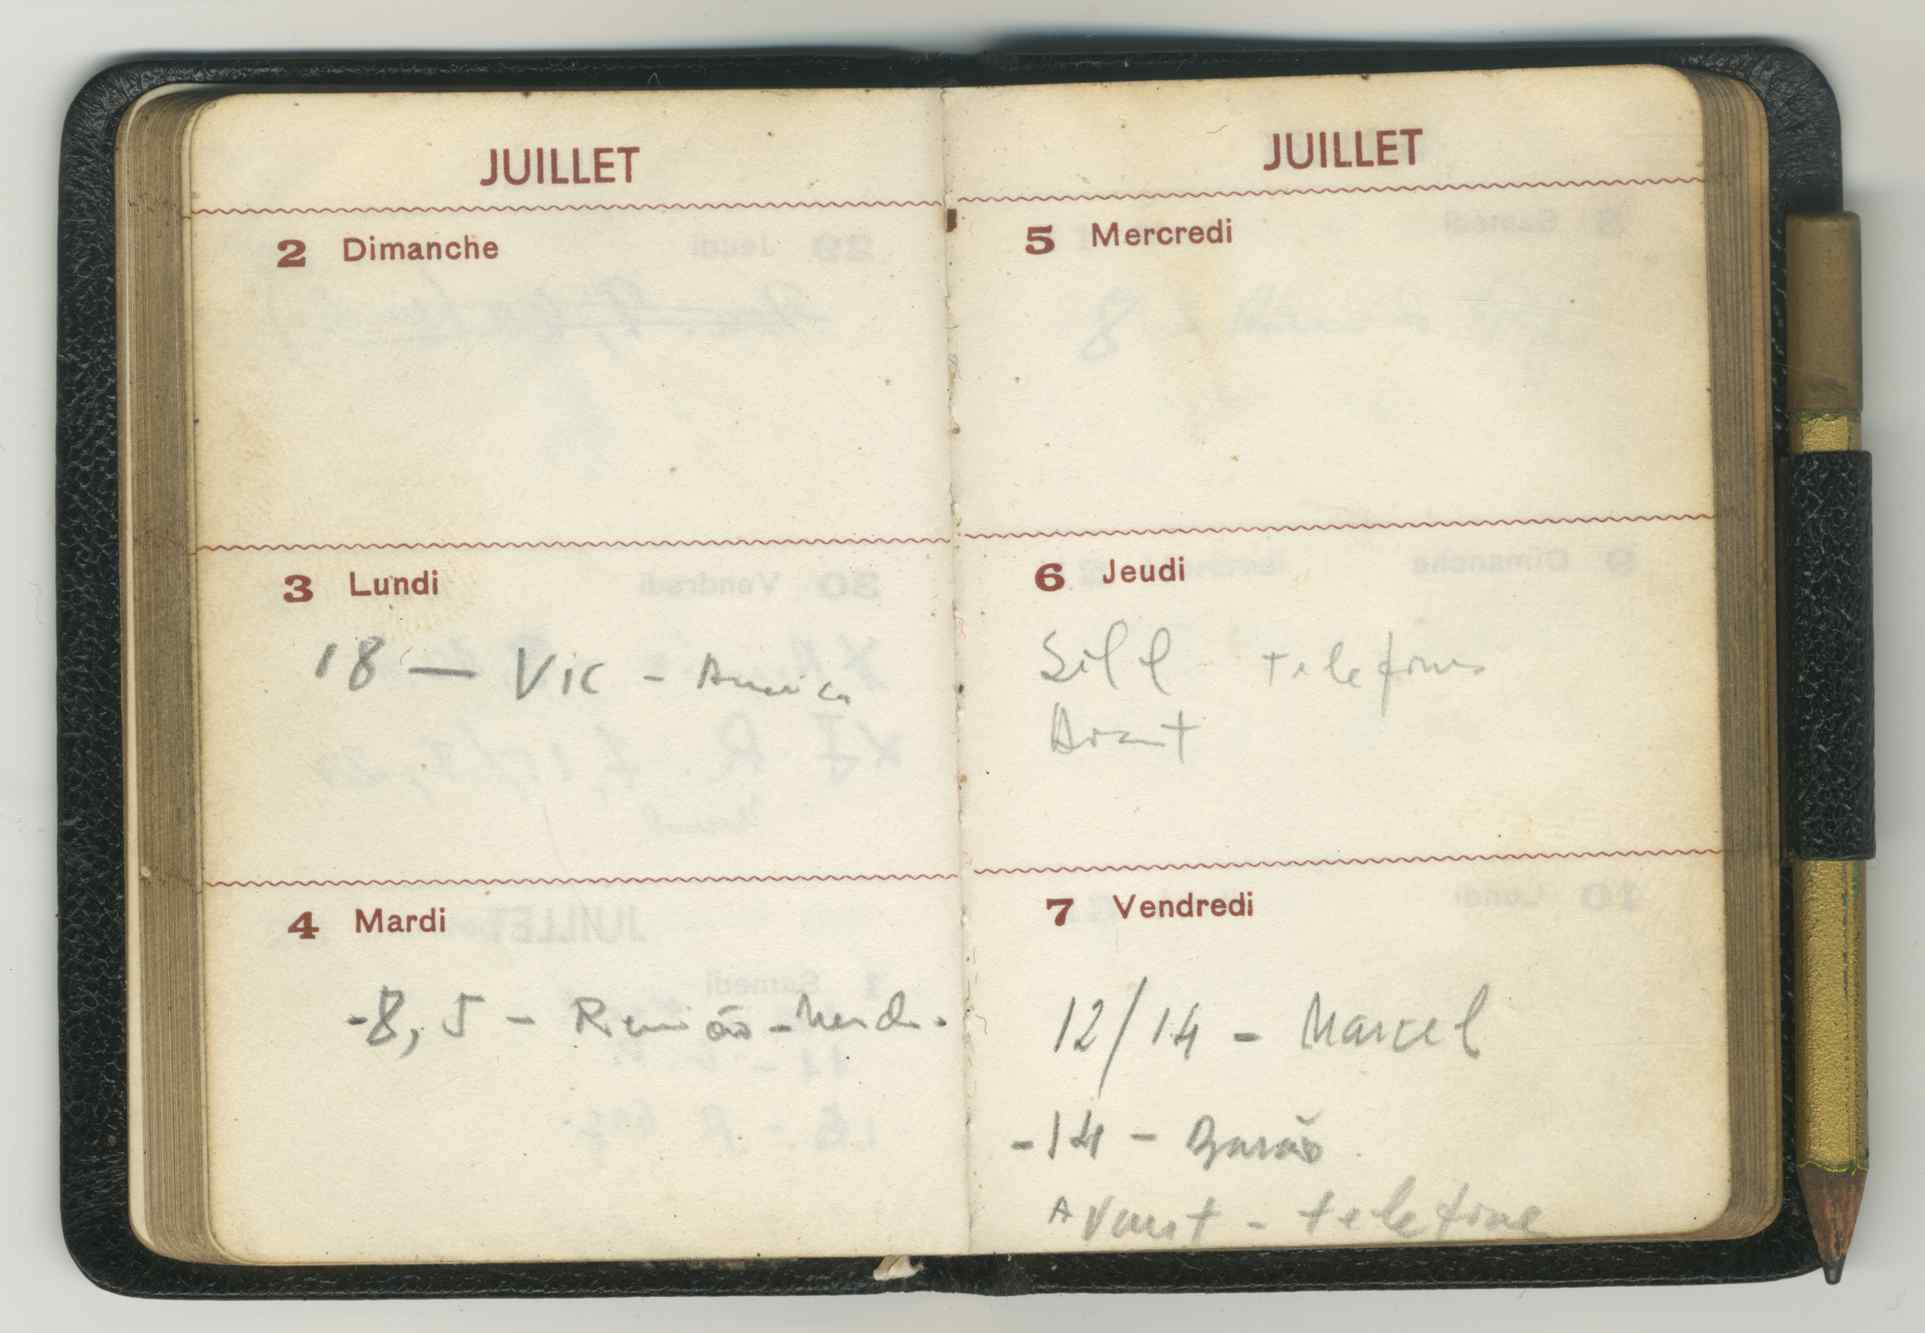 JUILLET
2 Dimanche
3 Lundi
18 — Vic -
4 Mardi
-8,5 -
JUILLET
5 Mercredi
6 Jeudi
Sill telefones
Avant
7 Vendredi
12/14 - Marcel
-14 -
Avant - telefone